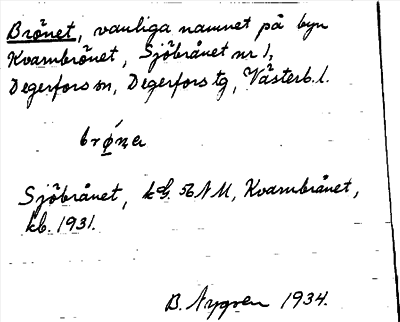 Brånet, vanliga namnet på byn
Kvarnbrånet, Sjöbrånet nr 1,
Degerfors sn, Degerfors tg, Västerb. l.
Sjöbrånet, kG. 56 NU, Kvarnbrånet,
kb. 1931.
B. Nygren 1934.